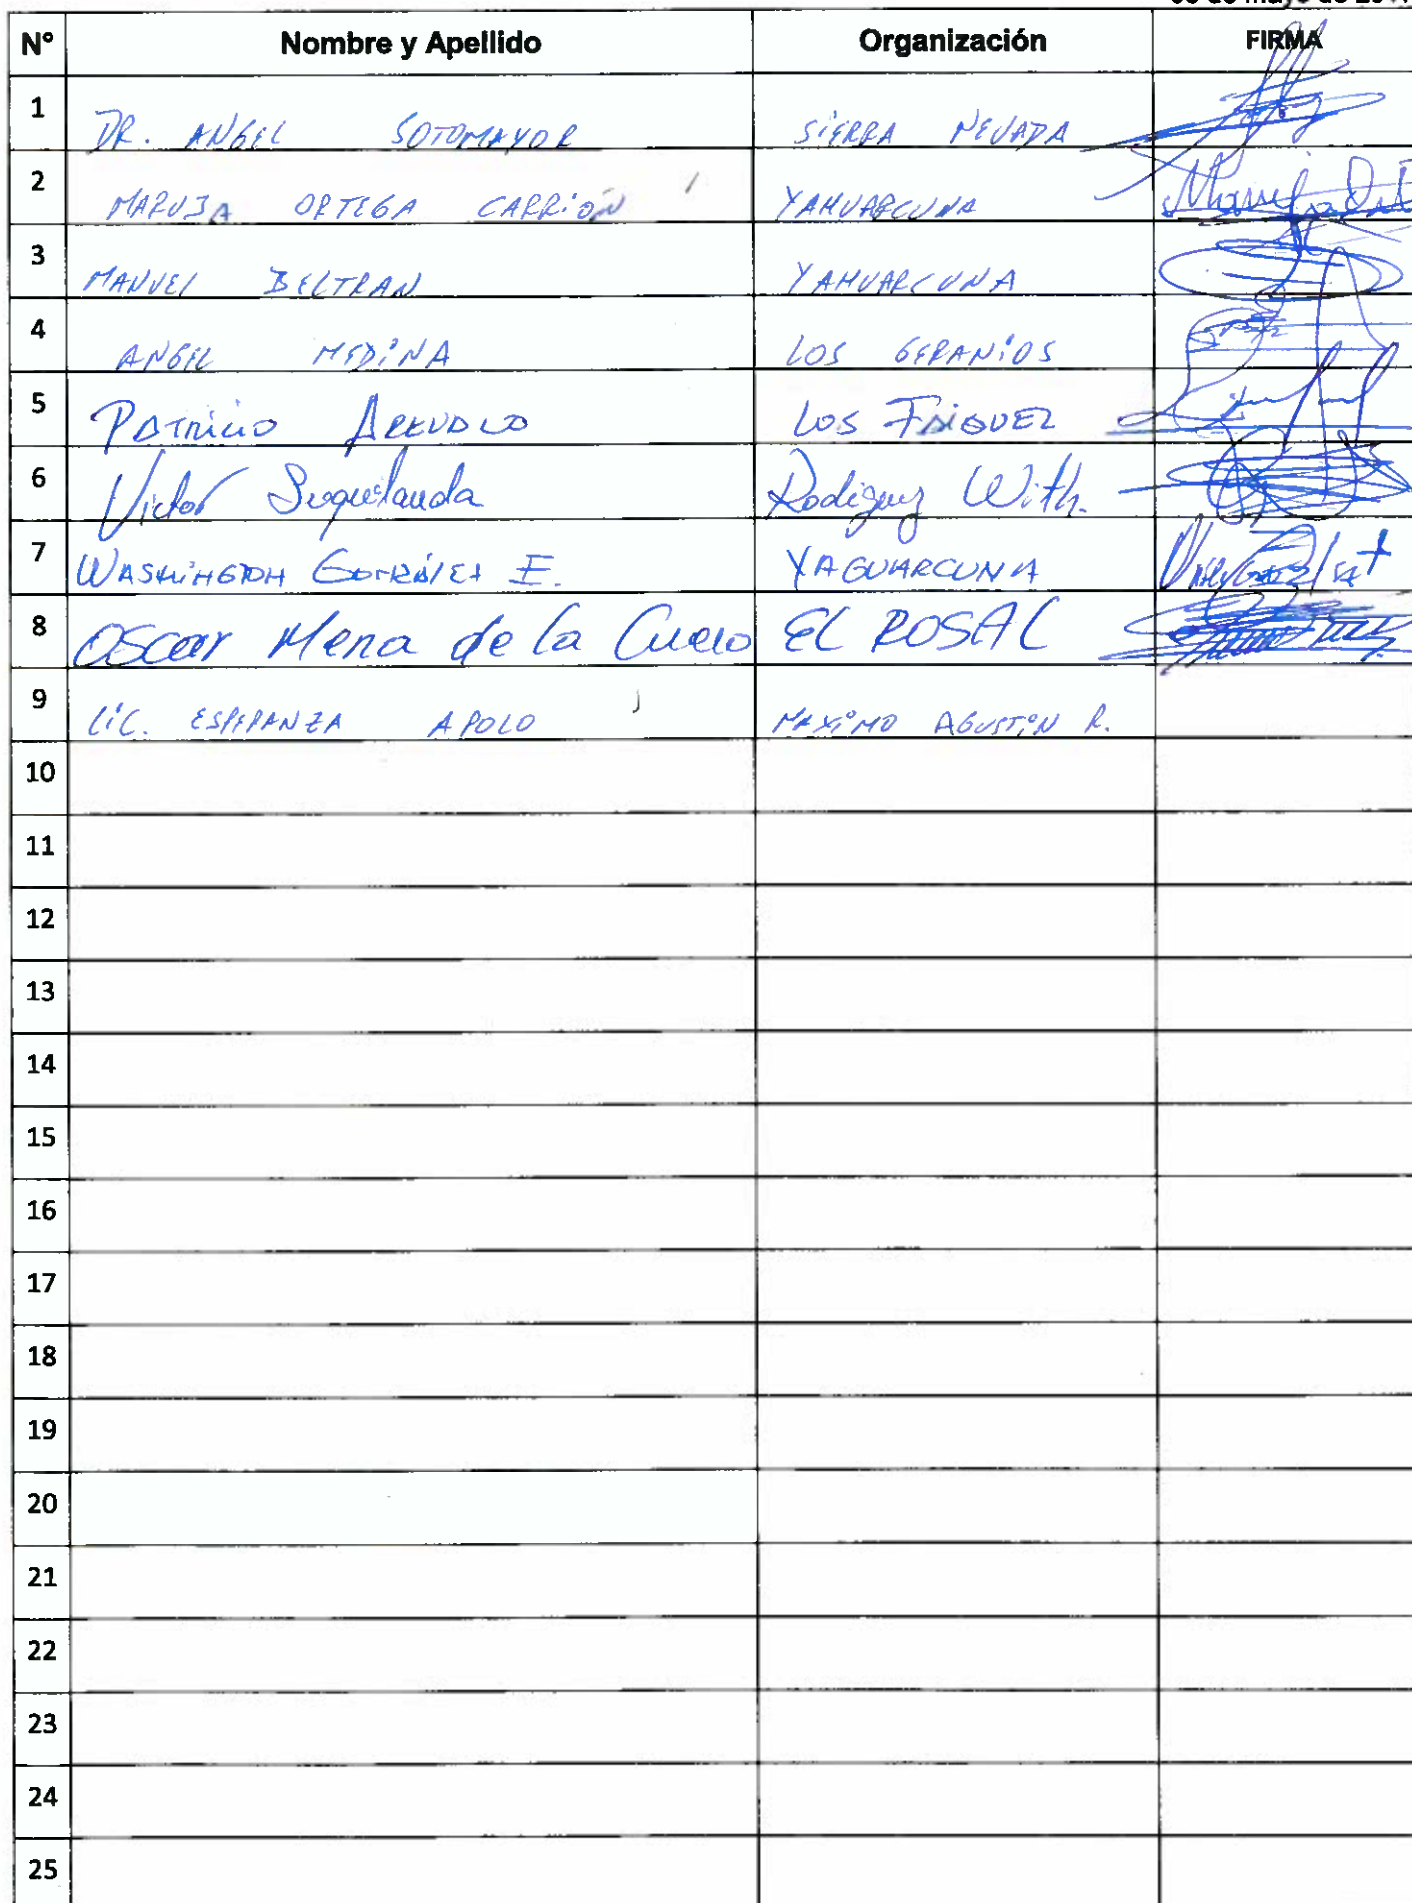 de mayo de
N° Nombre y Apellido Organización FIRMA
1 DR. ANGEL SOTOMAYOR SIERRA NEVADA
2 MARUJA ORTEGA CARRIÓN YAHUARCUNA
3 MANUEL BELTRAN YAHUARCUNA
4 ANGEL MEDINA LOS GERANIOS
5 PATRICIO AREVALO LOS
6 Victor Suquilanda With.
7 WASHINGTON GONZÁLEZ E. YAGUARCUNA
8 OSCAR Mena de la EL ROSAL
9 LIC. ESPERANZA APOLO MAXIMO AGUSTIN R.
10
11
12
13
14
15
16
17
18
19
20
21
22
23
24
25